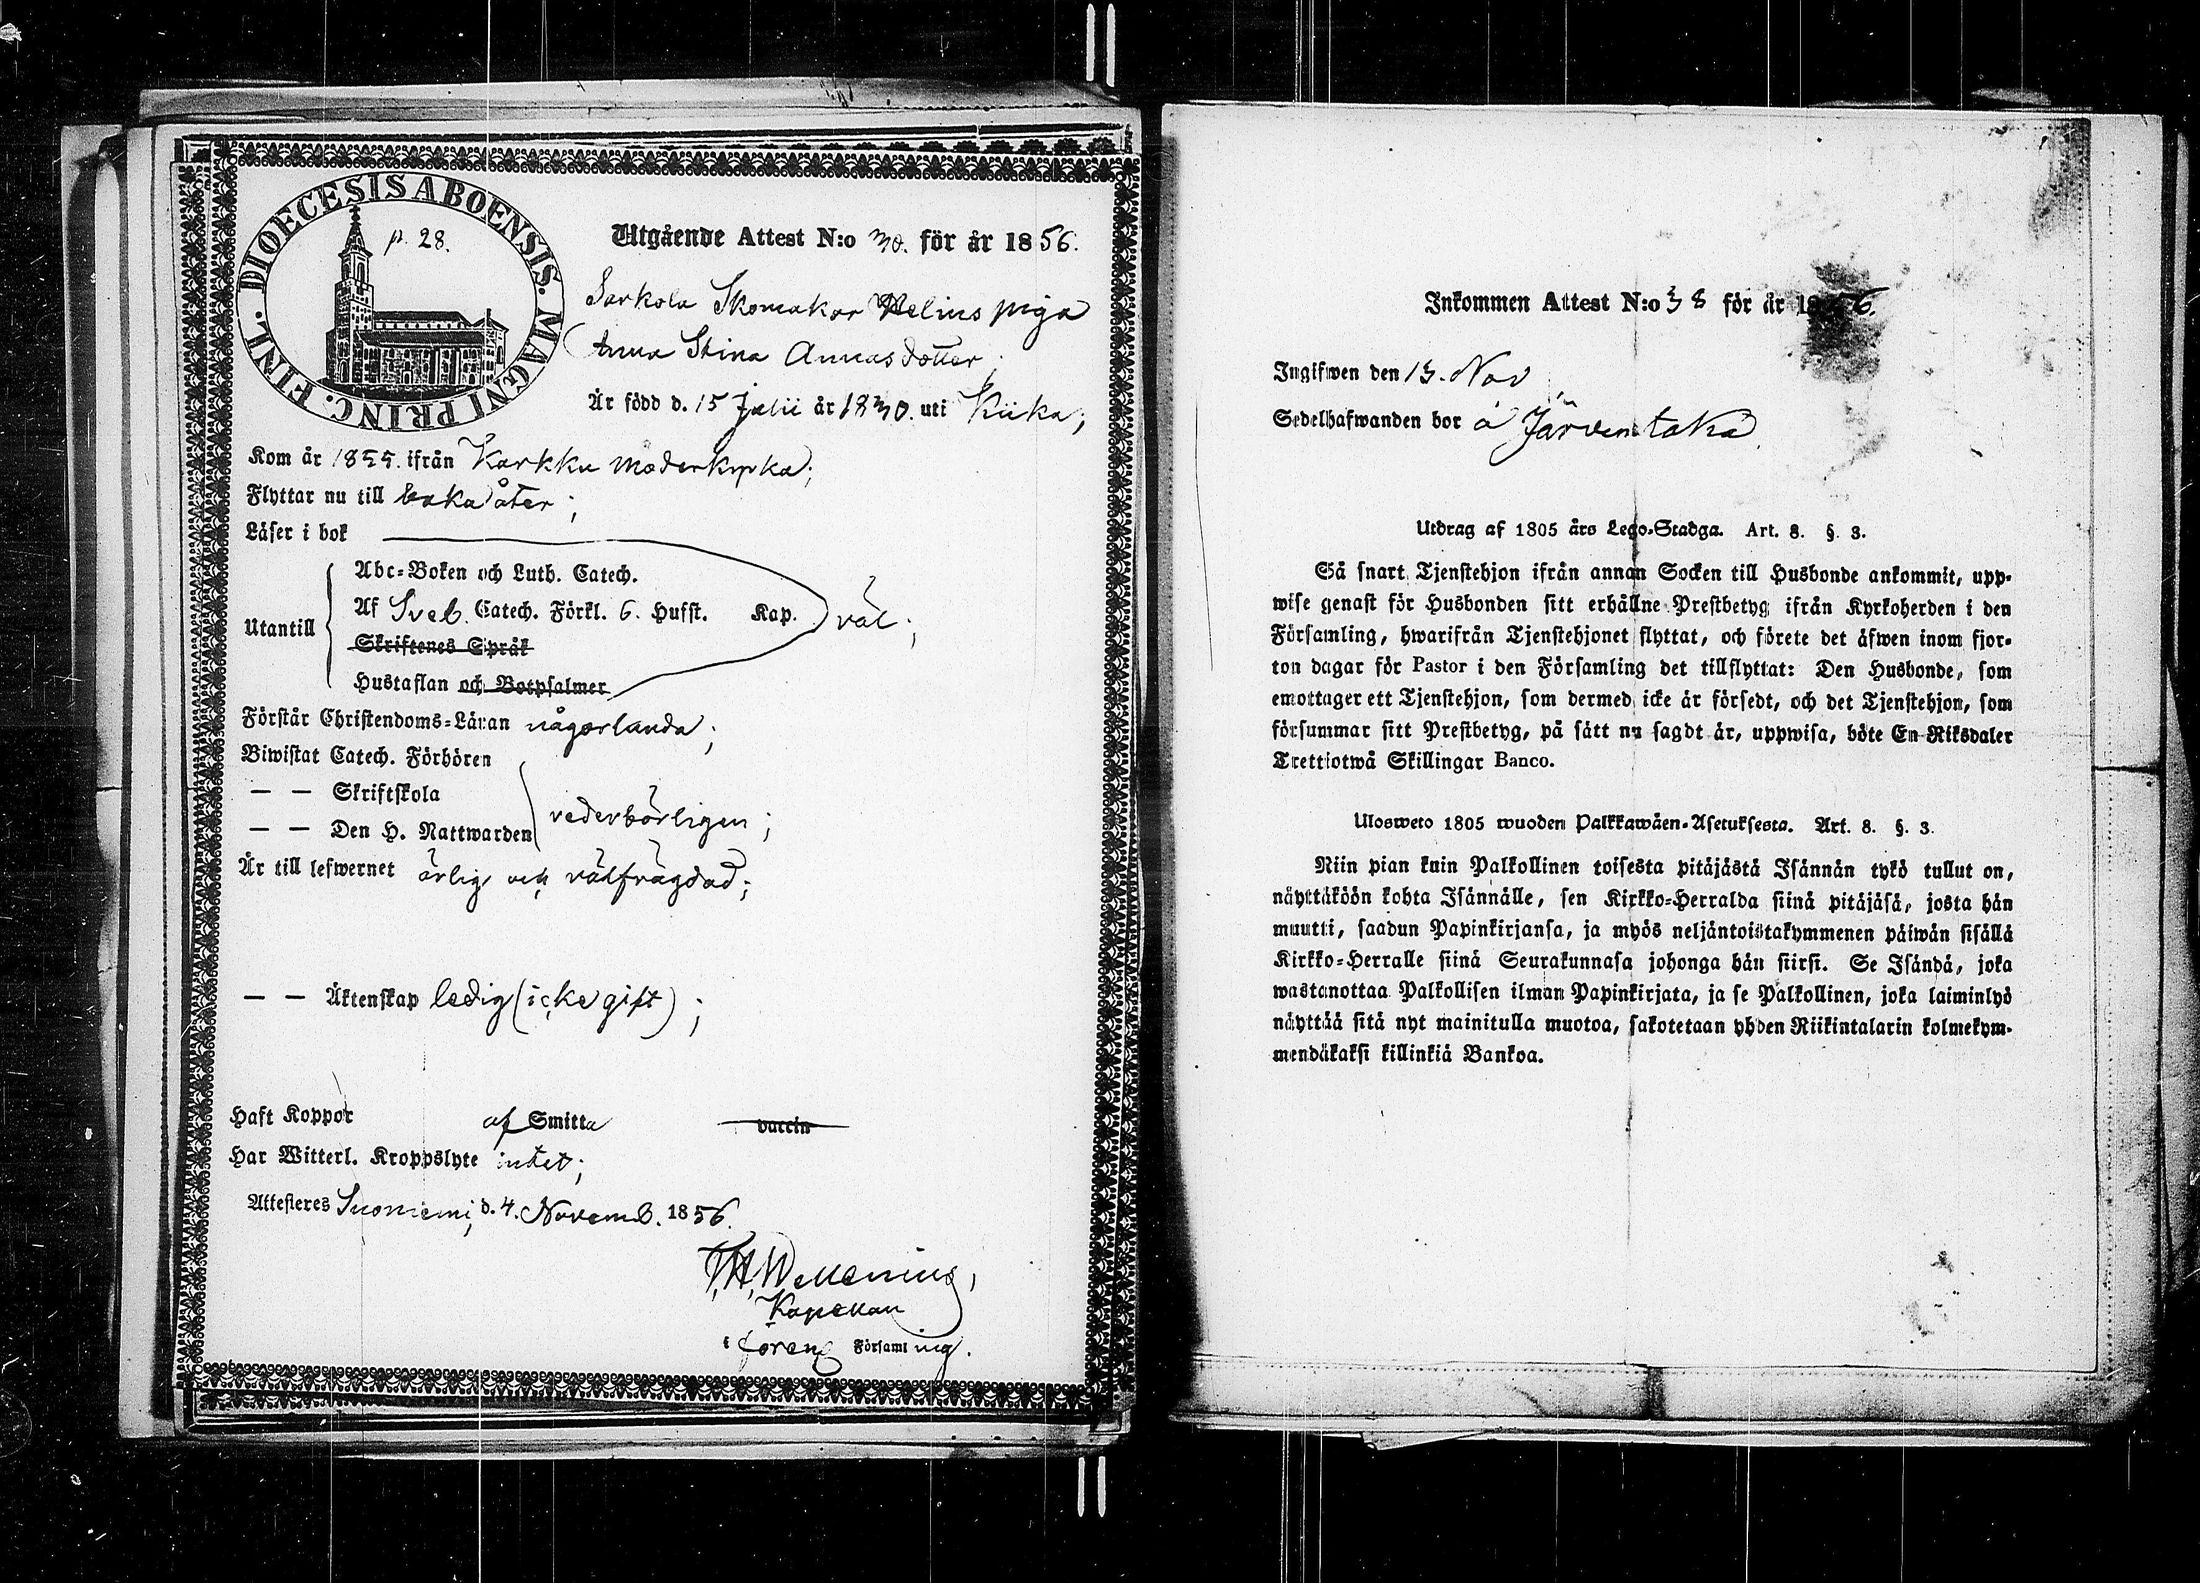 DIOECESIS ABOENSIS. MAGNI PRINC. FINL.
p. 28.
Utgående Attest N:o 30. för år 1856.
Sarkola Skomakar Helius piga
Anna Stina Annasdotter;
Är född d. 15 Julii år 1830. uti Kiika;
Kom år 1855. ifrån Karkku moderkyrka;
Flyttar nu till baka åter;
Läser i bok
Utantill
Abc-Boken och Luth. Catech.
Af Sveb. Catech. Förkl. 6. Hufst. Kap. väl;
Skriftenes Språk
Hustaflan och Botpsalmer
Förstår Christendoms-Läran någorlunda;
Biwistat Catech. Förhören
— — Skriftskola
— — Den H. Nattwarden vederbörligen;
Är till lefwernet ärlig och välfrägdad;
— — Äktenskap ledig (icke gift);
Haft Koppor af Smitta vaccin
Har Witterl. Kroppslyte intet;
Attesteres Suoniemi, d. 4. Novemb. 1856.
Kapellan
i förend Församling.
Inkommen Attest N:o 38 för år 1856.
Ingifwen den 13. Nov
Sedelhafwanden bor å Järventaka
Utdrag af 1805 års Lego-Stadga. Art. 8. §. 3.
Så snart Tjenstehjon ifrån annan Socken till Husbonde ankommit, upp-
wise genast för Husbonden sitt erhållne Prestbetyg ifrån Kyrkoherden i den
Församling, hwarifrån Tjenstehjonet flyttat, och förete det äfwen inom fjor-
ton dagar för Pastor i den Församling det tillflyttat: Den Husbonde, som
emottager ett Tjenstehjon, som dermed icke är försedt, och det Tjenstehjon, som
försummar sitt Prestbetyg, på sätt nu sagdt är, uppwisa, böte En Riksdaler
Trettiotwå Skillingar Banco.
Ulosweto 1805 wuoden Palkkawäen-Asetuksesta. Art. 8. §. 3.
Niin pian kuin Palkollinen toisesta pitäjästä Isännän tykö tullut on,
näyttäköön kohta Isännälle, sen Kirkko-Herralda siinä pitäjäsä, josta hän
muutti, saadun Papinkirjansa, ja myös neljäntoistakymmenen päiwän sisällä
Kirkko-Herralle siinä Seurakunnasa johonga hän siirsi. Se Isändä, joka
wastanottaa Palkollisen ilman Papinkirjata, ja se Palkollinen, joka laiminlyö
näyttää sitä nyt mainitulla muotoa, sakotetaan yhden Riikintalarin kolmekym-
mendäkaksi killinkiä Bankoa.